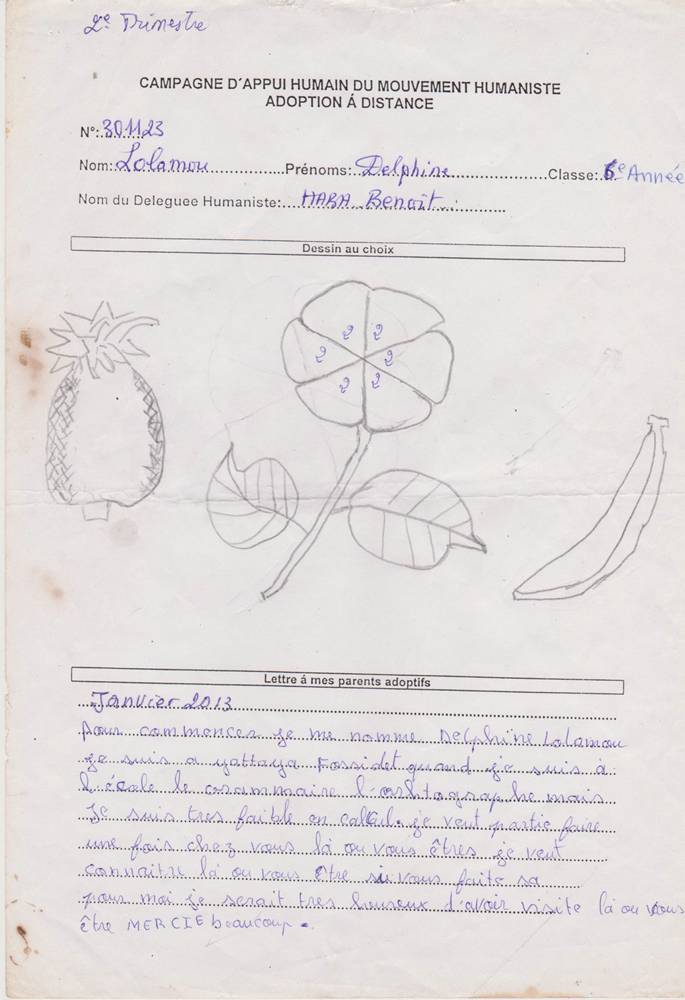 2e Trimestre
CAMPAGNE D´APPUI HUMAIN DU MOUVEMENT HUMANISTE
ADOPTION Á DISTANCE
N°: 301123
Nom: Lolamou Prénoms: Delphine Classe: 6e Année
Nom du Deleguee Humaniste: HABA Benoît
Dessin au choix
2 2
2 2
2 2
Lettre á mes parents adoptifs
Janvier 2013
Pour commencer je me nomme Delphine Lolamou
je suis a yattaya Fossidet quand je suis à
l'école le
mais
Je suis tres faible en calcul. je veut partie faire
une fois chez vous là ou vous êtres je veut
connaitre là ou vous être si vous faite sa
pour moi je serait tres heureux d'avoir visite là ou vous
être MERCIE beaucoup.